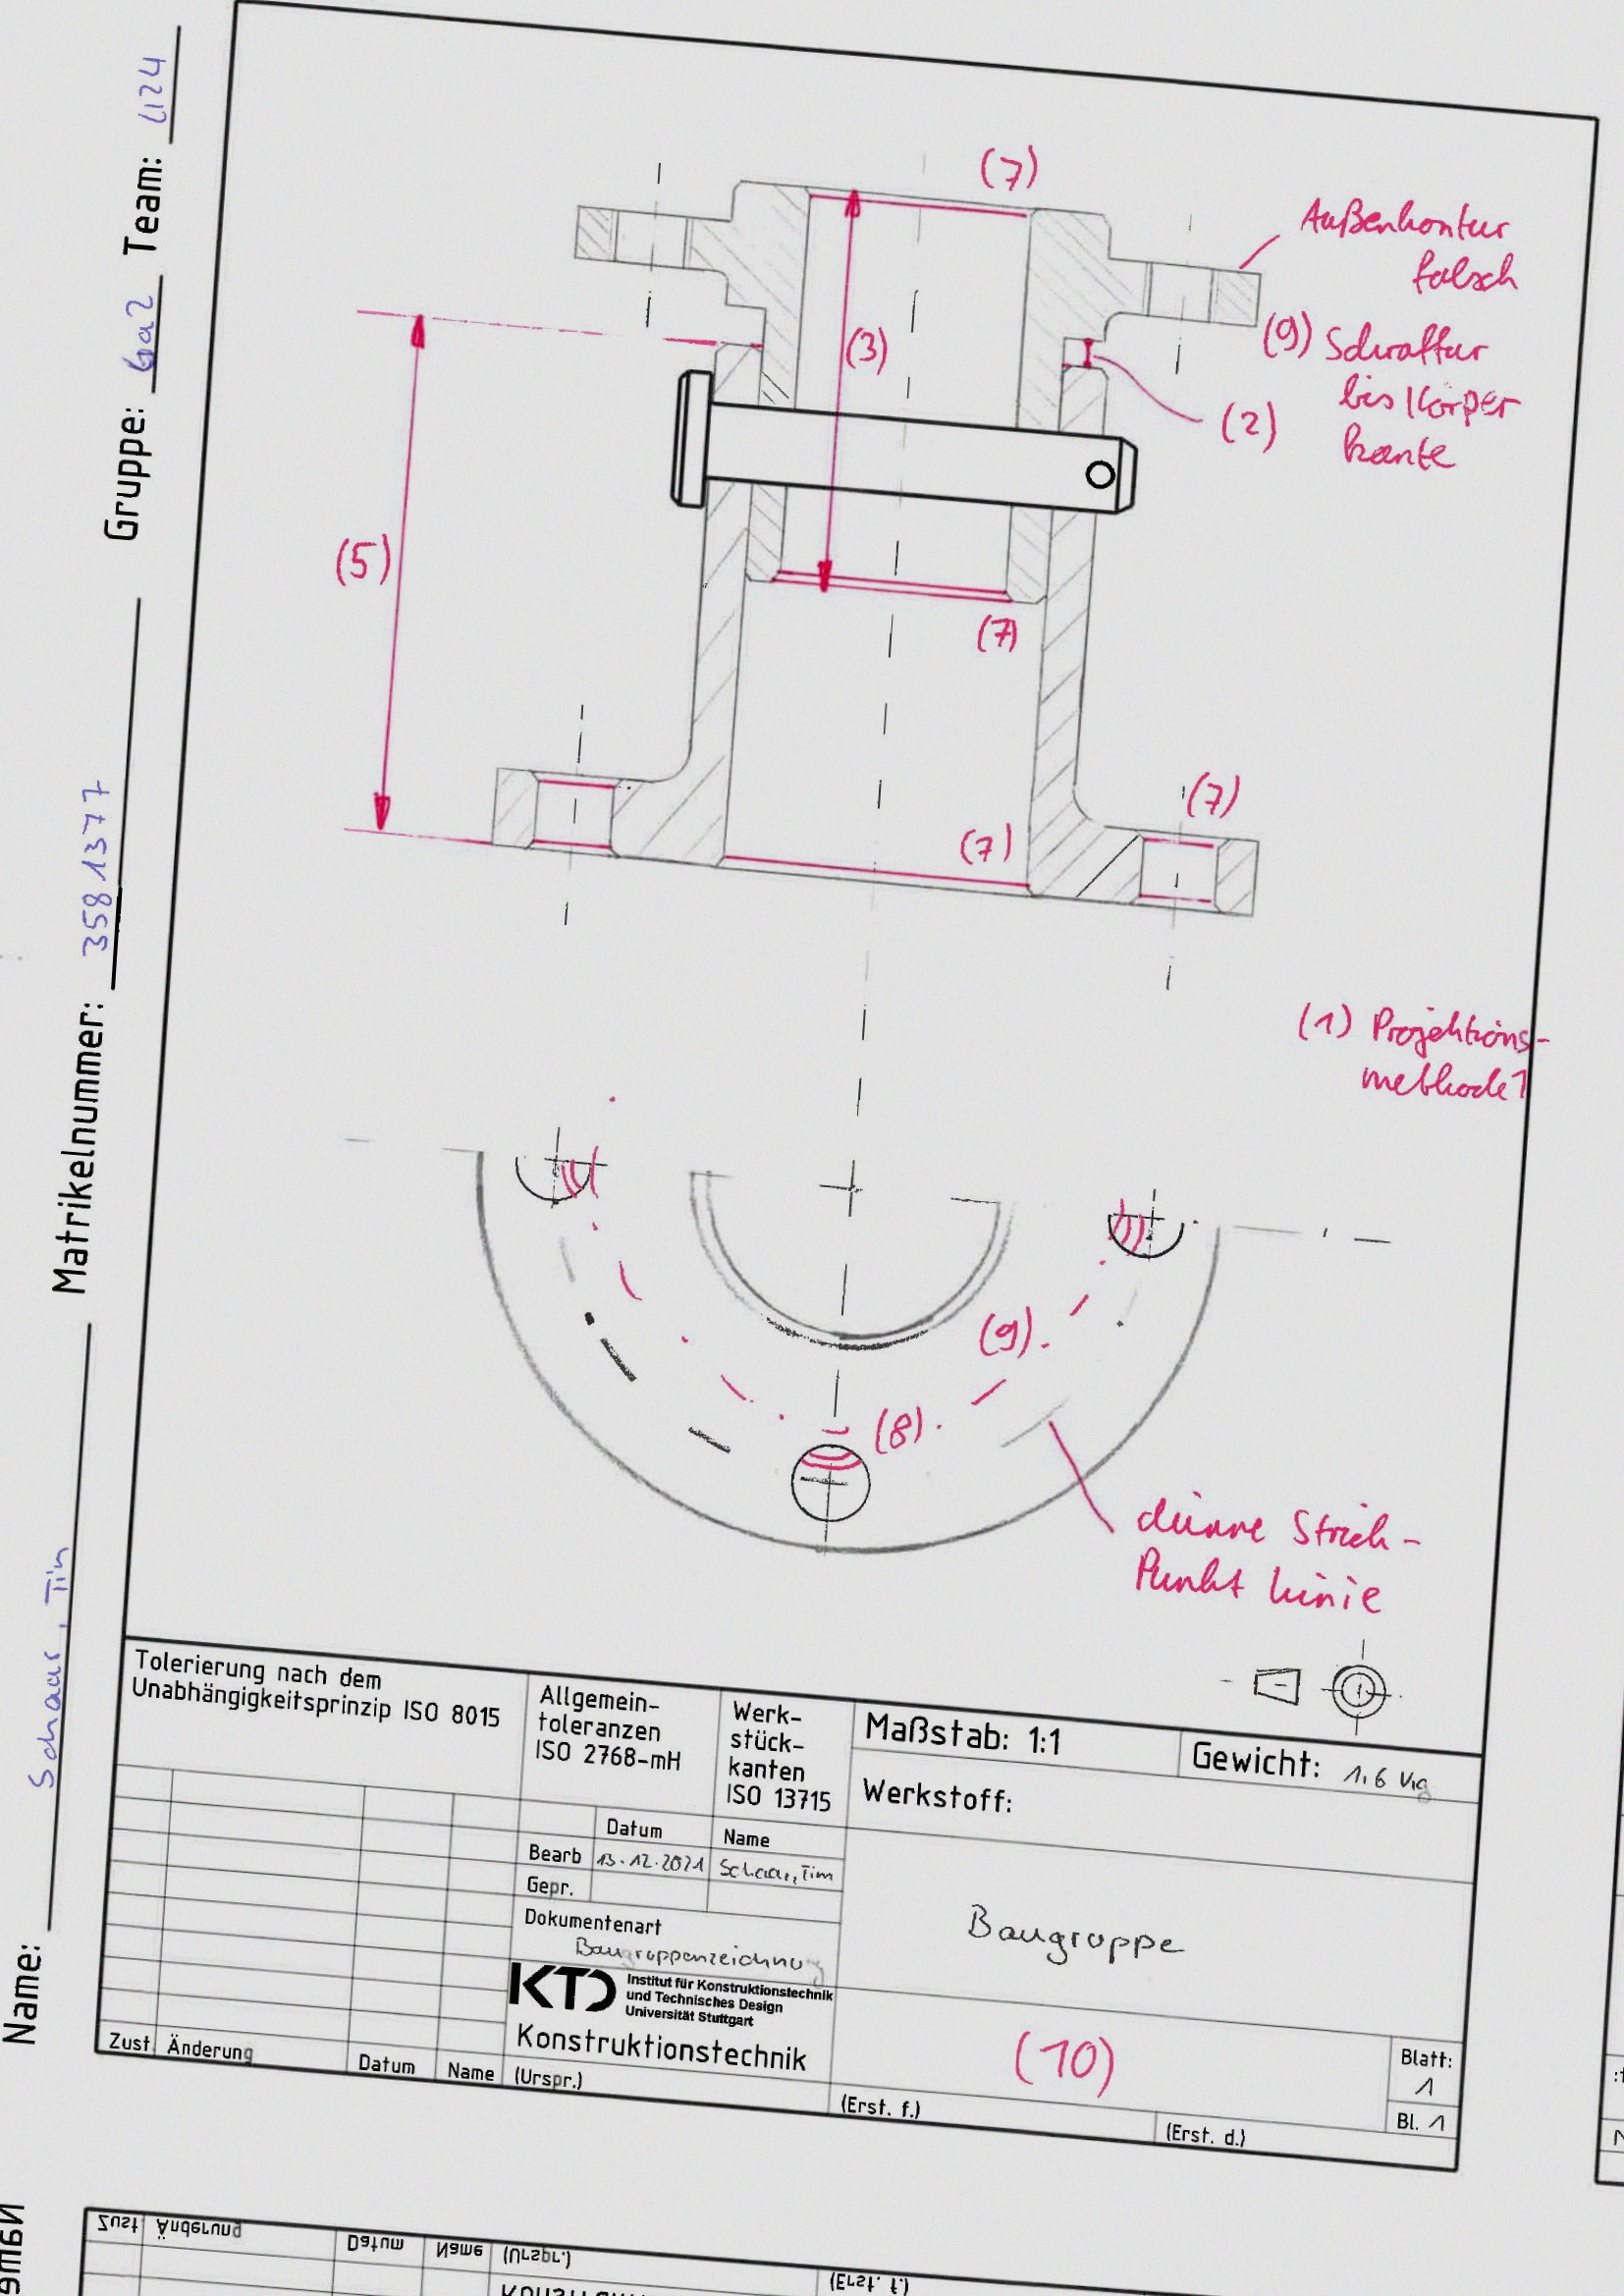 Name: Schaar, Tim
Matrikelnummer: 3581377
Gruppe: Ga2
Team: U24
(7)
Außenkontur
falsch
(3)
(9) Schraffur
bis Körper
kante
(2)
(5)
(7)
(7)
(7)
(1) Projektions-
methode 1
(9)
(8)
dünne Strich-
Punkt Linie
Tolerierung nach dem
Unabhängigkeitsprinzip ISO 8015
Allgemein-
toleranzen
ISO 2768-mH
Werk-
stück-
kanten
ISO 13715
Maßstab: 1:1
Gewicht: 1,6 kg
Werkstoff:
Datum
Name
Bearb 13.12.2021 Schaar, Tim
Gepr.
Dokumentenart
Baugruppenzeichnung
Baugruppe
KTD
Institut für Konstruktionstechnik
und Technisches Design
Universität Stuttgart
Konstruktionstechnik
(10)
Blatt:
1
Bl. 1
Zust. Änderung Datum Name (Urspr.)
(Erst. f.)
(Erst. d.)
Zust Änderung Datum Name (Urspr.)
(Erst. f.)